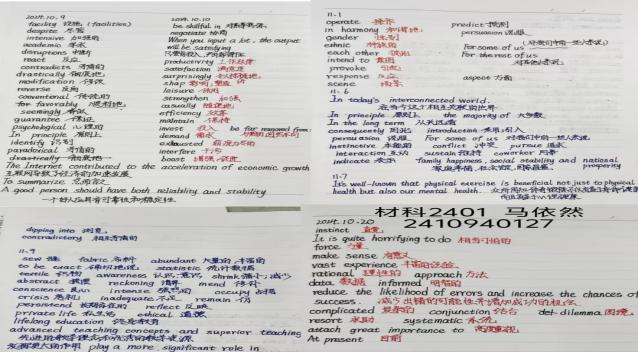 2024.10.9
facility 设施 (facilities)
despite 尽管
intensive 加强的
academic 学术
disruptions 中断
react 反应
contradicts 矛盾的
drastically 彻底地
modification 修改
reverse 反向
conventional 传统的
for favorably 顺利地
seemingly 看似
guarantee 保证
psychological 心理的
In principle 原则上
identify 识别
paradoxical 矛盾的
drastically
The Internet contributed to the acceleration of economic growth
互联网导致了经济的加速发展
To summarize 总而言之
A good person should have both reliability and stability
一个好人应具有可靠性和稳定性
2024.10.10
be skillful in
negotiate 协商
When you input a lot, the output
will be satisfying
productivity 工作效率
satisfaction 满意度
surprisingly
shap 影响, 塑造
leisure 休闲
strengthen 加强
casually 随便地
efficiency 效率
maintain 保持
invest 投入
be far removed from
demand 需求
exhausted 精疲力尽的
interfere 干涉
boost 增强
11.1
operate 操作
in harmony 和谐地
gender 性别
ethnic 种族的
each other 彼此
intend to 意图
provoke 引起
response 反应
scene 场景
predict 预测
persuasion 说服
For some of us
For the rest of us
aspect 方面
11.6
In today's interconnected world.
In principle 原则上 the majority of 大多数
In the long term 从长远看
consequently 因此 introduction 采用, 引入
persuasion 说服 For some of us 对我们中的一些人来说
instinctive 本能的 conflict 冲突 pursue 追求
interaction 互动 sustain 维持 coworker 同事
indicate 表示 family happiness, social stability and national
prosperity
11.7
It's well-known that physical exercise is beneficial not just to physical
health but also our mental health.
dipping into 浏览
contradictory 相互矛盾的
11.9
sew 缝 fabric 布料 abundant 大量的, 丰富的
to be exact 确切地说 statistic 统计数据
nettle 荨麻 awareness 认识, 意识 shrink 缩小, 减少
abstract 摘要 reckoning 清算 mend 修补
conscience 良心 intense 强烈的 occupy 占据
crisis 危机 inadequate 不足 remain 仍
persistend 长期存在的 reflect 反映
private life 私生活 ethical 道德
lifelong education 终身教育
advanced teaching concepts and superior teaching
先进的教学理念和优秀的教学资源
play a more significant role in
材料2401 马依然
2410940127
2024.10.20
instinct 直觉
It is quite horrifying to do 相当可怕的
force 力量
make sense 有意义
vast experience 丰富的经验
rational 理性的 approach 方法
data 数据 informed 明智的
reduce the likelihood of errors and increase the chances of
success. 减少出错的可能性并增加成功的机会
complicated 复杂的 conjunction 结合 det-dilemma 困境
resort 求助 systematic 系统
attach great importance to 高度重视
At present 目前